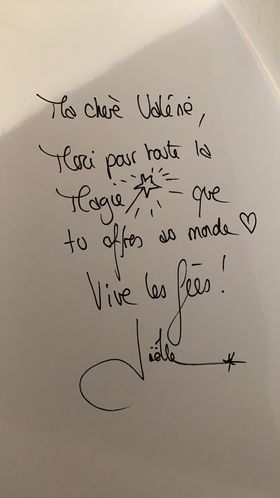 Ma chère Valérie,
Merci pour toute la
Magie que
tu offres au monde ♡
Vive les fées !
Joëlle